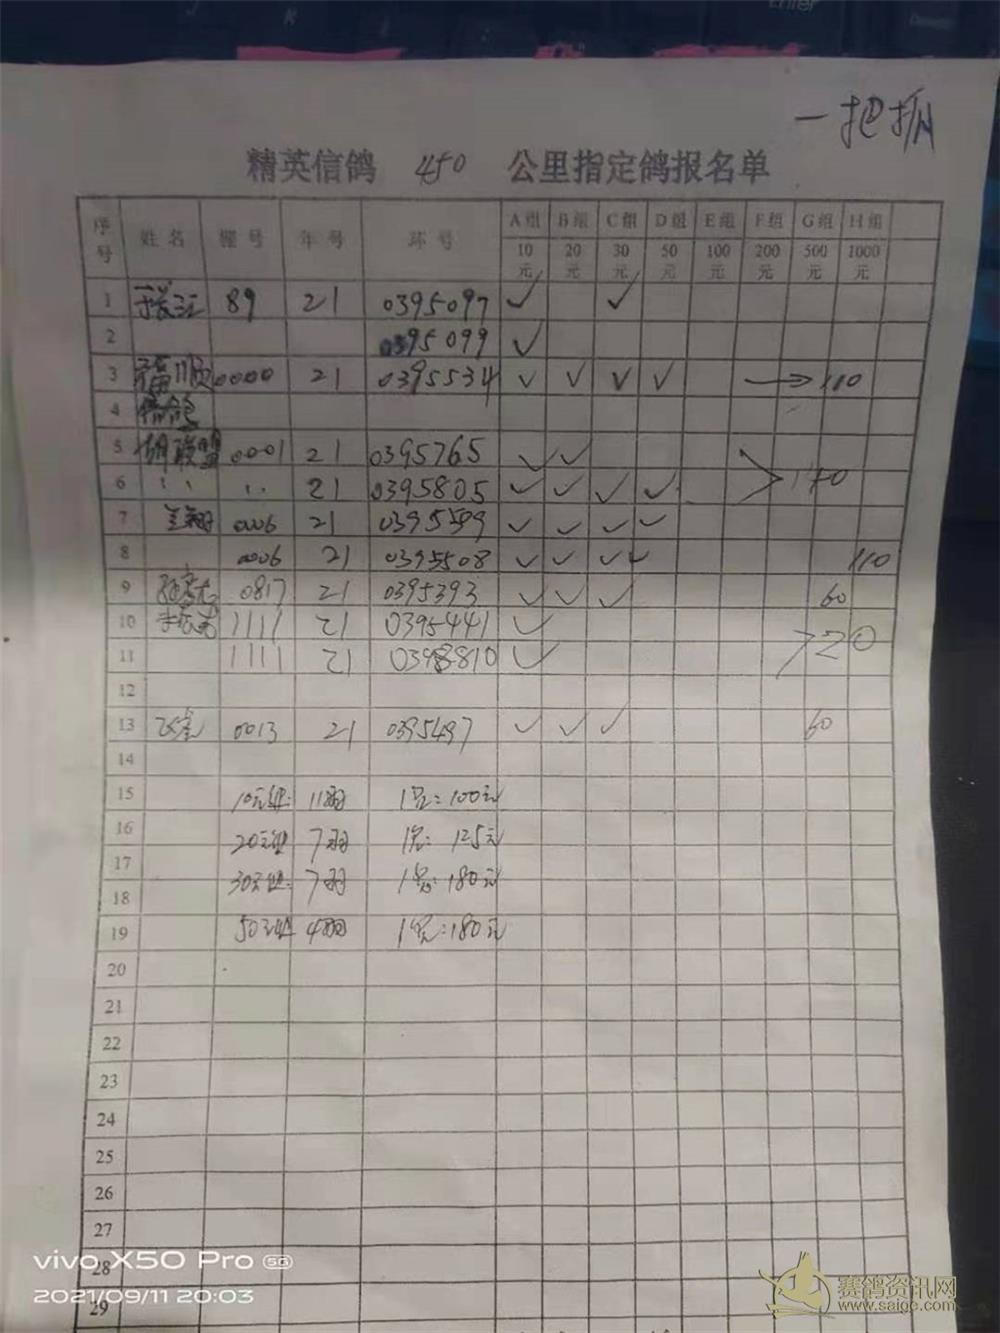 一把抓
精英信鸽 450 公里指定鸽报名单
序号 姓名 棚号 年号 环号 A组 B组 C组 D组 E组 F组 G组 H组
10元 20元 30元 50元 100元 200元 500元 1000元
1 89 21 0395097 ✓ ✓
2 0395099 ✓
3 福顺 0000 21 0395534 ✓ ✓ ✓ ✓ → 110
4 信鸽
5 联盟 0001 21 0395765 ✓ ✓
6 〃 〃 21 0395805 ✓ ✓ ✓ ✓ > 140
7 0006 21 0395599 ✓ ✓ ✓ ✓
8 0006 21 0395508 ✓ ✓ ✓ ✓ 110
9 0817 21 0395393 ✓ ✓ ✓ 60
10 1111 21 0395441 ✓
11 1111 21 0398810 ✓ > 20
12
13 0013 21 0395497 ✓ ✓ ✓ 60
14
15 10元组: 11羽 1名: 100元
16 20元组 7羽 1名: 125元
17
18 30元组: 7羽 1名: 180元
19 50元组 4羽 1名: 180元
20
21
22
23
24
25
26
27
28
29
vivo X50 Pro 5G
2021/09/11 20:03
赛鸽资讯网
www.saige.com